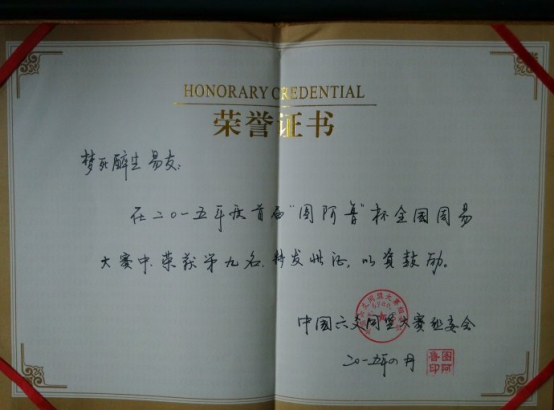 HONORARY CREDENTIAL
荣誉证书
梦死醉生易友:
在二〇一五年度首届“周阿鲁”杯全国周易
大赛中,荣获第九名,特发此证,以资鼓励。
中国六爻同盟大赛组委会
二〇一五年〇月